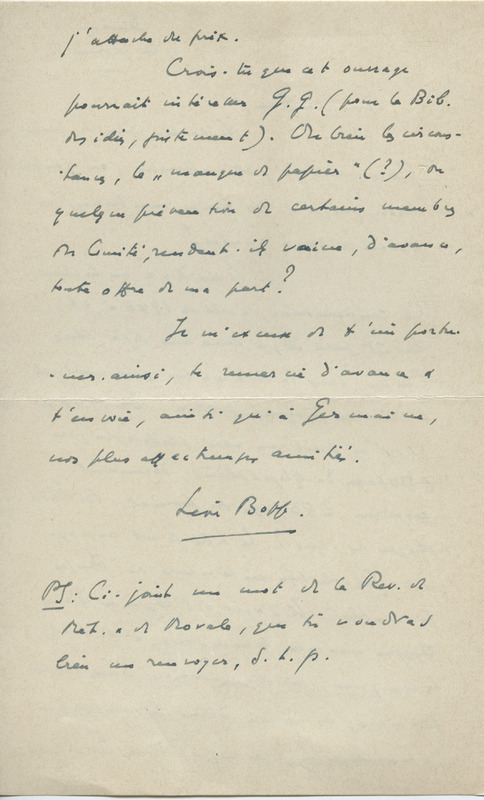 j'attache du prix.
Crois-tu que cet ouvrage
pourrait intéresser G.G. (pour la Bib.
des idées, justement). Ou bien les circons-
tances, le „manque de papier" (?), ou
quelque prévention de certains membres
du Comité, rendent-ils vaine, d'avance,
toute offre de ma part?
Je m'excuse de t'importu-
-ner ainsi, te remercie d'avance &
t'envoie, ainsi qu'à Germaine,
nos plus affectueuses amitiés.
Léon Bopp.
PS: Ci-joint un mot de la Rev. de
Mét. & de Morale, que tu voudras
bien me renvoyer, s. t. p.